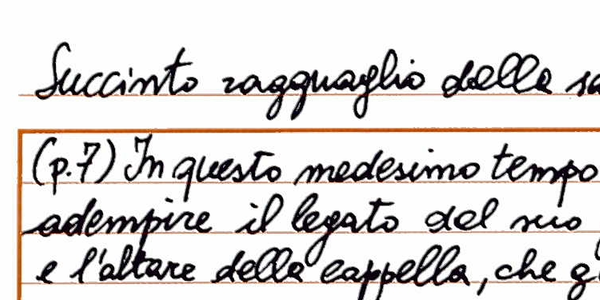 Succinto ragguaglio della sa
(p.7) In questo medesimo tempo
adempire il legato del suo
e l'altare della cappella, che gi